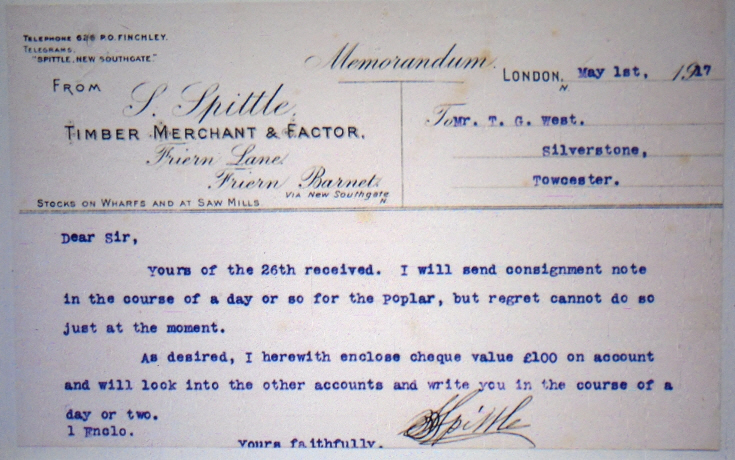 TELEPHONE 626 P.O. FINCHLEY.
TELEGRAMS,
"SPITTLE, NEW SOUTHGATE."
Memorandum.
LONDON, N. May 1st, 1917
FROM
S. Spittle,
TIMBER MERCHANT & FACTOR.
Friern Lane,
Friern Barnet,
VIA NEW SOUTHGATE N.
STOCKS ON WHARFS AND AT SAW MILLS.
To Mr. T. G. West.
Silverstone,
Towcester.
Dear Sir,
Yours of the 26th received. I will send consignment note
in the course of a day or so for the Poplar, but regret cannot do so
just at the moment.
As desired, I herewith enclose cheque value £100 on account
and will look into the other accounts and write you in the course of a
day or two.
1 Enclo.
Yours faithfully.
SSpittle